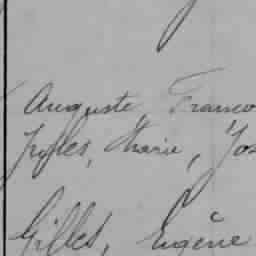 Auguste, Franco
Jules, Marie, Jos
Gilles, Eugène